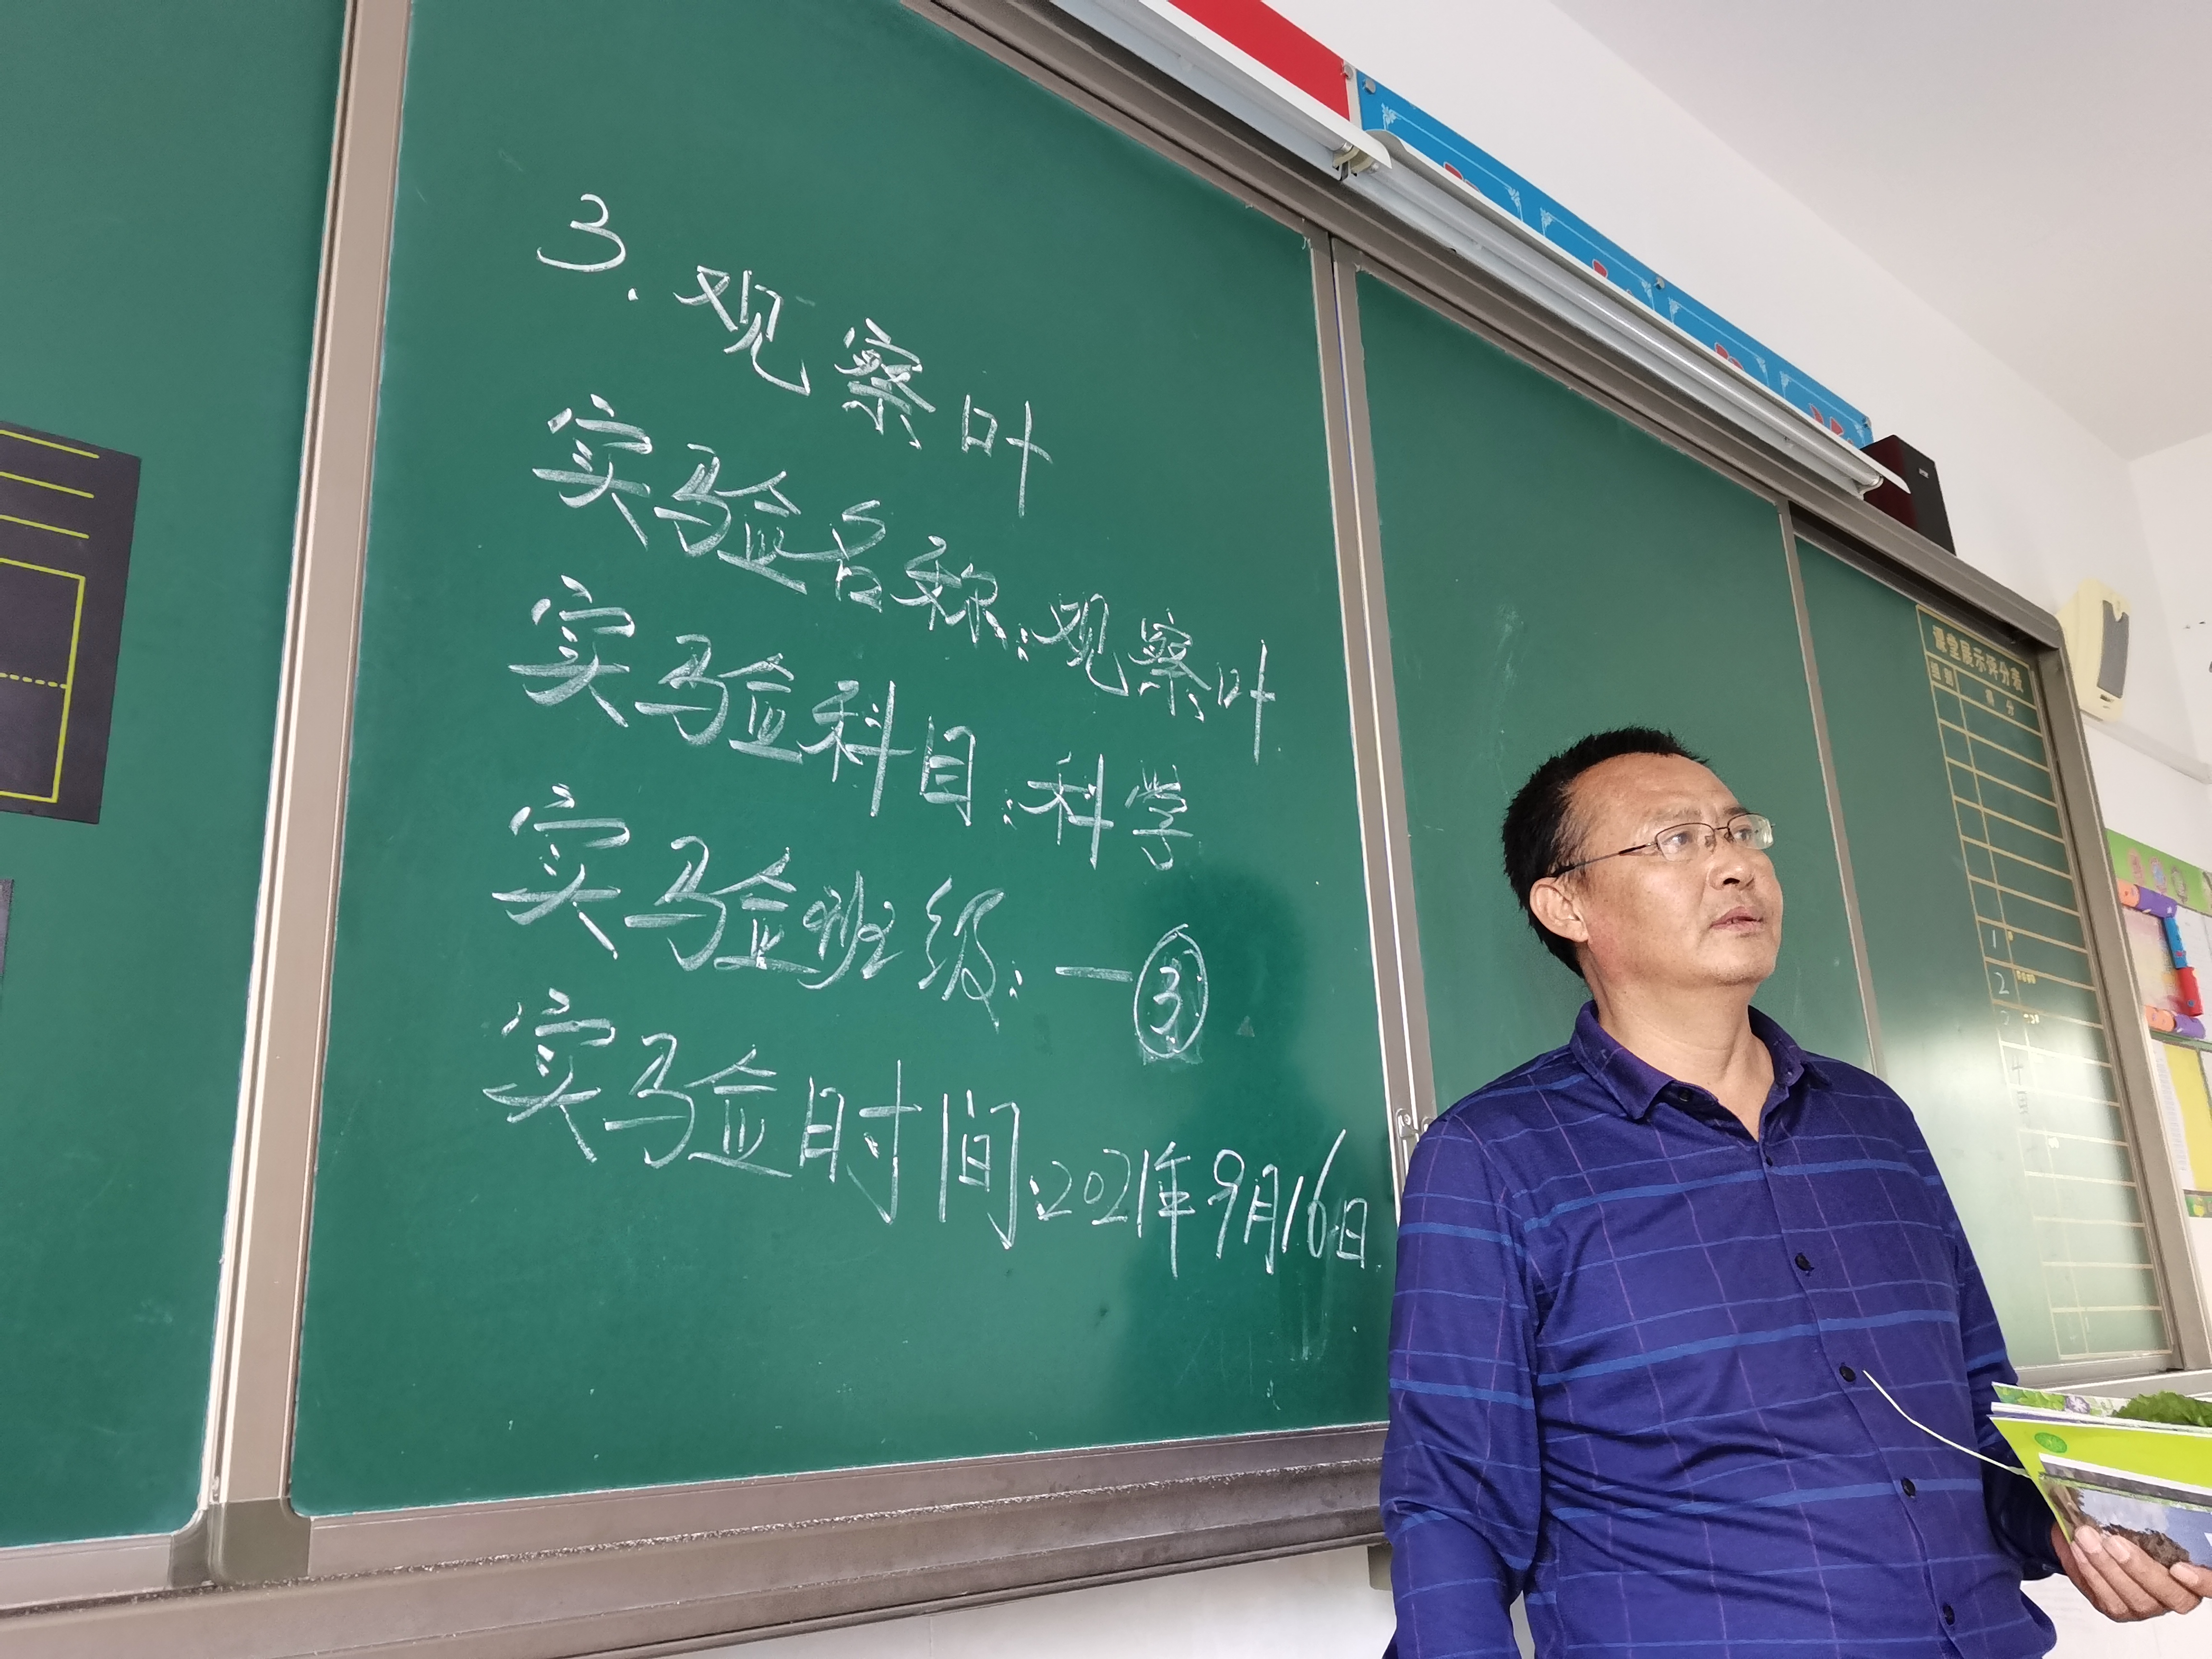 3.观察叶
实验名称:观察叶
实验科目:科学
实验班级:一③
实验时间:2021年9月16日
课堂展示评分表
得分
1
2